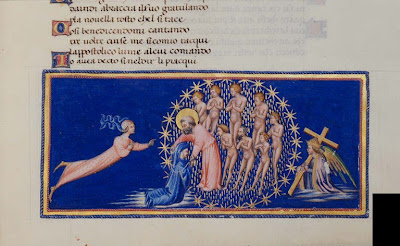 daindi abraccia ilsuo gratulando
pla novella tosto chel si tace
Cosi benedicendomi cantando
tre volte cinse me sicomio tacqui
lappostolico lume alcui comando
Io avea decto sineldir lipiacqui